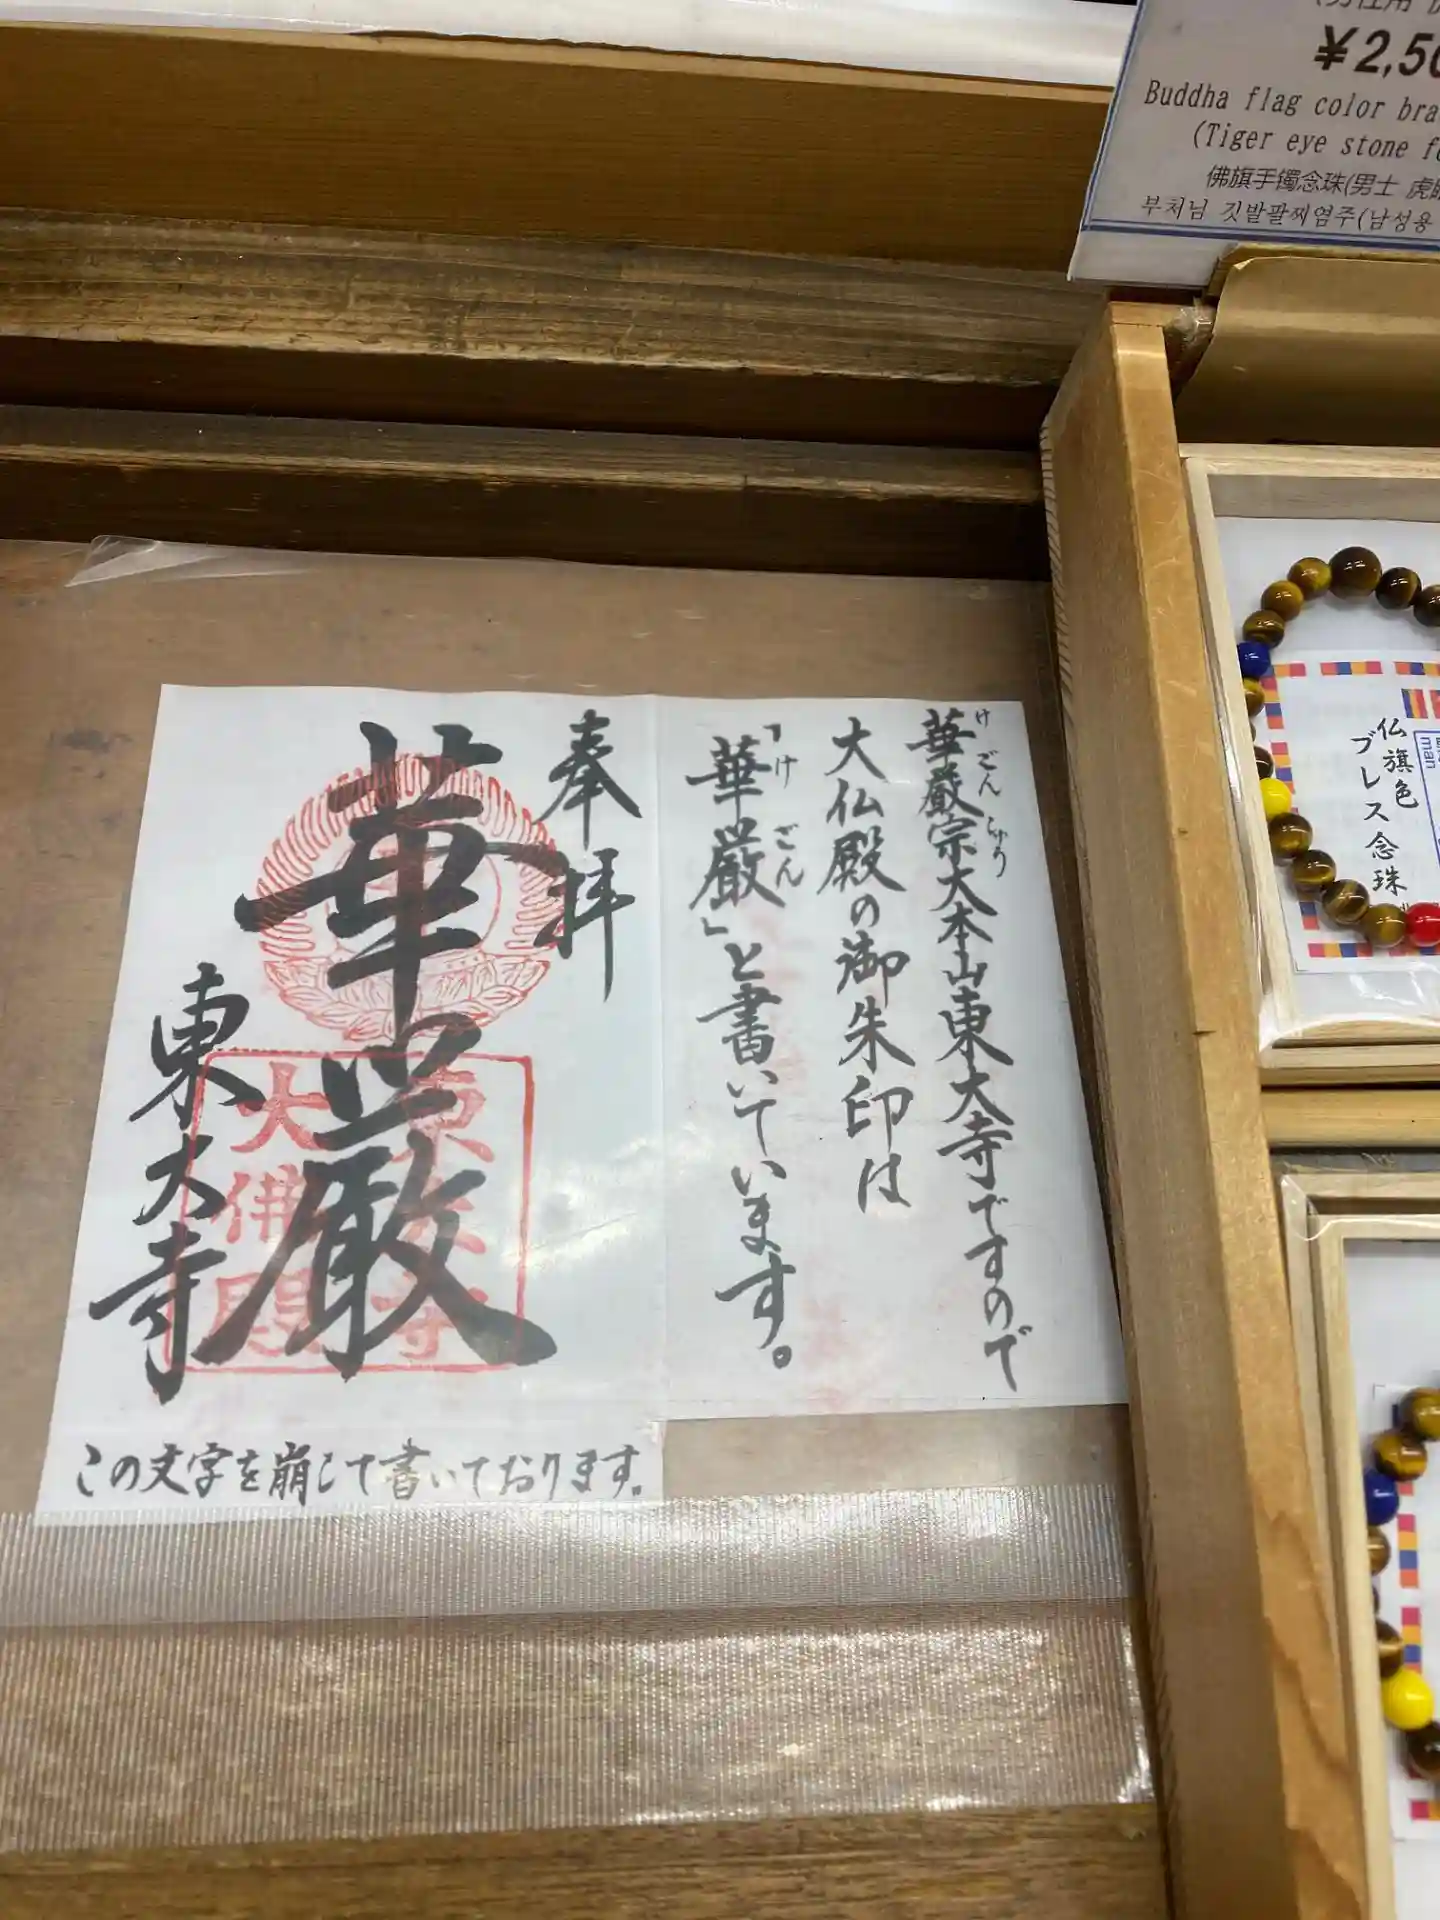 ¥2,50
Buddha flag color bra
(Tiger eye stone f
佛旗手镯念珠(男士 虎眼
부처님 깃발팔찌염주(남성용
華厳宗大本山東大寺ですので
けごんしゅう
大仏殿の御朱印は
「華厳」と書いています。
けごん
奉拝
華厳
東大寺
東大寺
大佛殿
この文字を崩して書いております。
仏旗色
ブレス念珠
man